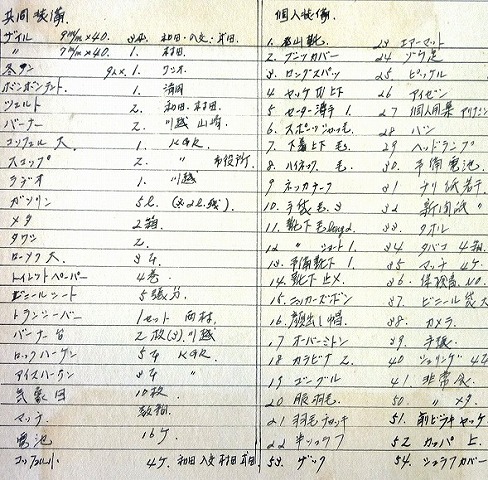 共同装備.
ザイル 9m/m×40. 3本. 和田・入交・武田
〃 7m/m×40. 1. 村田
1. ワシオ
ボンボンテント. 1. 津田
ツェルト 2. 和田. 村田.
バーナー 2. 川越 山崎.
コッフェル 大. 1. KGR.
スコップ 2. 〃 市役所.
ラジオ 1. 川越
ガソリン 5ℓ.
メタ 2箱.
タワシ 2.
ローソク 大. 3本.
トイレットペーパー 4巻.
ビニールシート 5張分.
トランシーバー 1セット
バーナー台 2枚(3). 川越
ロックハーケン 5本 KGR.
アイスハーケン 3本 〃
気象図 10枚.
マッチ
電池 16ケ.
コッフェル小. 4ケ. 和田 入交 村田 武田
個人装備.
1. 登山靴.
2. ブーツカバー
3. ロングスパッツ
4. ヤッケ 上下
5. セーター 薄手 1.
6. スポーツシャツ 毛.
7. 下着上下 毛.
8. ハイネック. 毛.
9. ネッカチーフ
10. 手袋 毛. 3
11. 靴下 毛 long 2.
12 〃 ショート 1.
13. 予備靴下 1.
14. 靴下止メ.
15. ニッカーズボン
16. 顔出し帽.
17 オーバーミトン
18 カラビナ 2.
19 ゴーグル
20 目出
21 羽毛チョッキ
22 半シュラフ
53. ザック
23 エアーマット
24 ゾウ足
25 ピッケル
26 アイゼン
27 個人用薬
28 パン
29 ヘッドランプ
30. 予備電池.
31 チリ紙 若干
32 新聞紙 〃
33. タオル
34 タバコ 4箱.
35 マッチ 4ケ.
36 保険証. NO.
37. ビニール袋 大
38. カメラ.
39. 手帳.
40
41. 非常食.
50. 〃 メタ.
51. ヤッケ
52. カッパ 上.
54. シュラフカバー